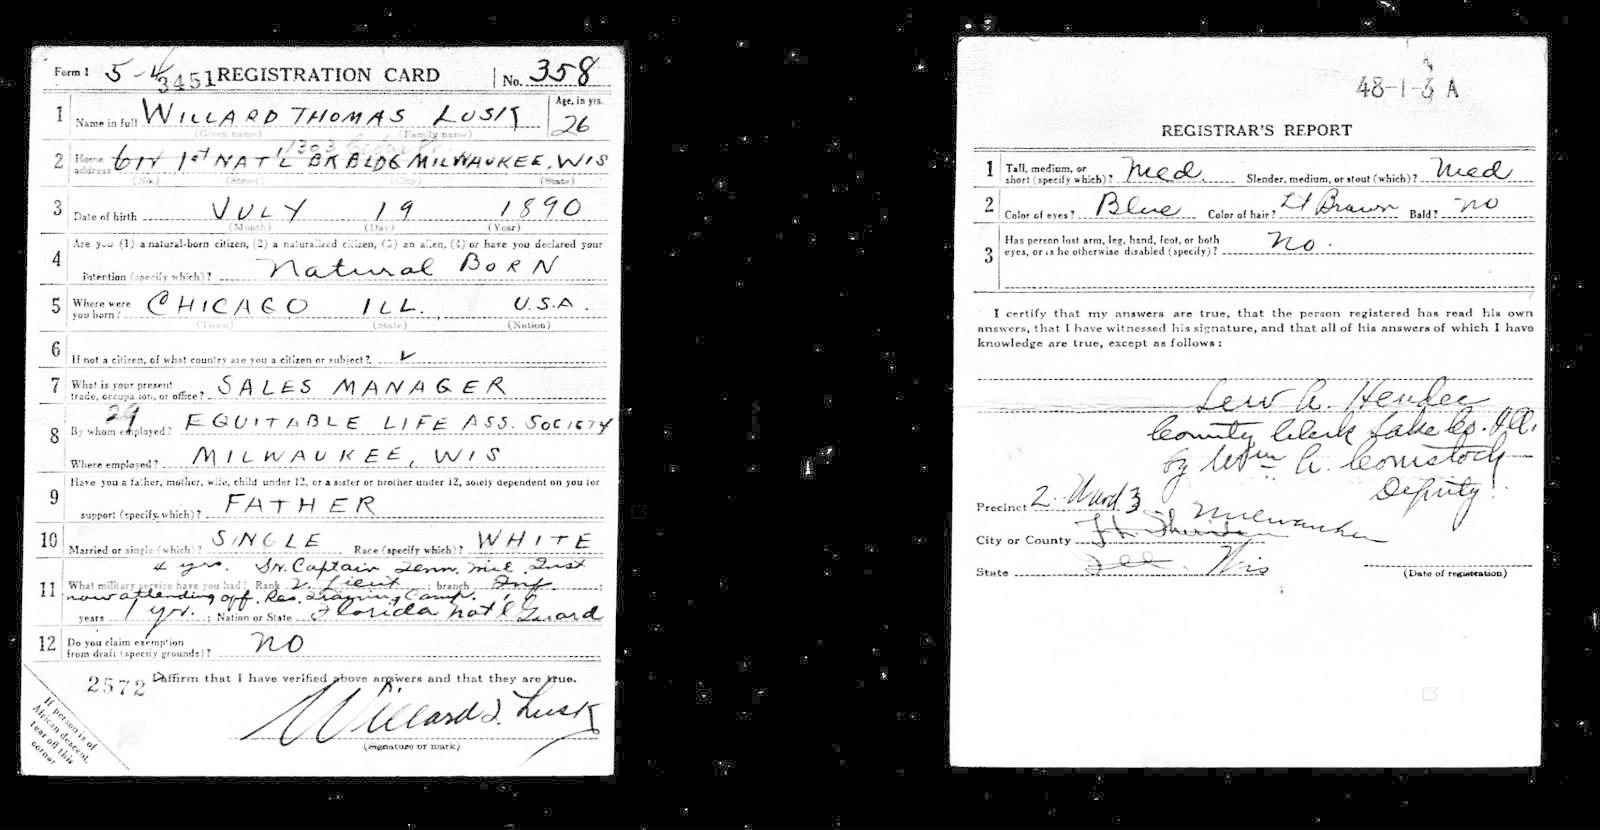 Form 1 5-4 3451 REGISTRATION CARD No. 358
1 Name in full WILLARD THOMAS LUSK Age, in yrs. 26
(Given name) (Family name)
1303
2 Home address 1st NAT'L BK BLDG MILWAUKEE, WIS
(No.) (Street) (City) (State)
3 Date of birth JULY 19 1890
(Month) (Day) (Year)
Are you (1) a natural-born citizen, (2) a naturalized citizen, (3) an alien, (4) or have you declared your
4 intention (specify which)? Natural BORN
5 Where were you born? CHICAGO ILL. U.S.A.
(Town) (State) (Nation)
6 If not a citizen, of what country are you a citizen or subject?
7 What is your present trade, occupation, or office? SALES MANAGER
29
8 By whom employed? EQUITABLE LIFE ASS. SOCIETY
Where employed? MILWAUKEE, WIS
9 Have you a father, mother, wife, child under 12, or a sister or brother under 12, solely dependent on you for
support (specify which)? FATHER
10 Married or single (which)? SINGLE Race (specify which)? WHITE
4 yrs. Sr. Captain Tenn. Mil. Inst
11 What military service have you had? Rank 2. Lieut ; branch Inf. ;
now attending off. Res. Training Camp.
years 1 yr. ; Nation or State Florida Nat'l Guard
12 Do you claim exemption from draft (specify grounds)? NO
2572 I affirm that I have verified above answers and that they are true.
Willard T. Lusk
(Signature or mark)
If person is of
African descent,
tear off this
corner
48-1-3 A
REGISTRAR'S REPORT
1 Tall, medium, or short (specify which)? Med. Slender, medium, or stout (which)? Med
2 Color of eyes? Blue Color of hair? Lt Brown Bald? No
3 Has person lost arm, leg, hand, foot, or both eyes, or is he otherwise disabled (specify)? No.
I certify that my answers are true, that the person registered has read his own
answers, that I have witnessed his signature, and that all of his answers of which I have
knowledge are true, except as follows:
Lew A. Hendee
County Clerk Lake Co. Ill.
by Wm A. Comstock
Deputy.
Precinct 2. Ward 3
City or County Ft. Sheridan Milwaukee
State Ill. Wis
(Date of registration)